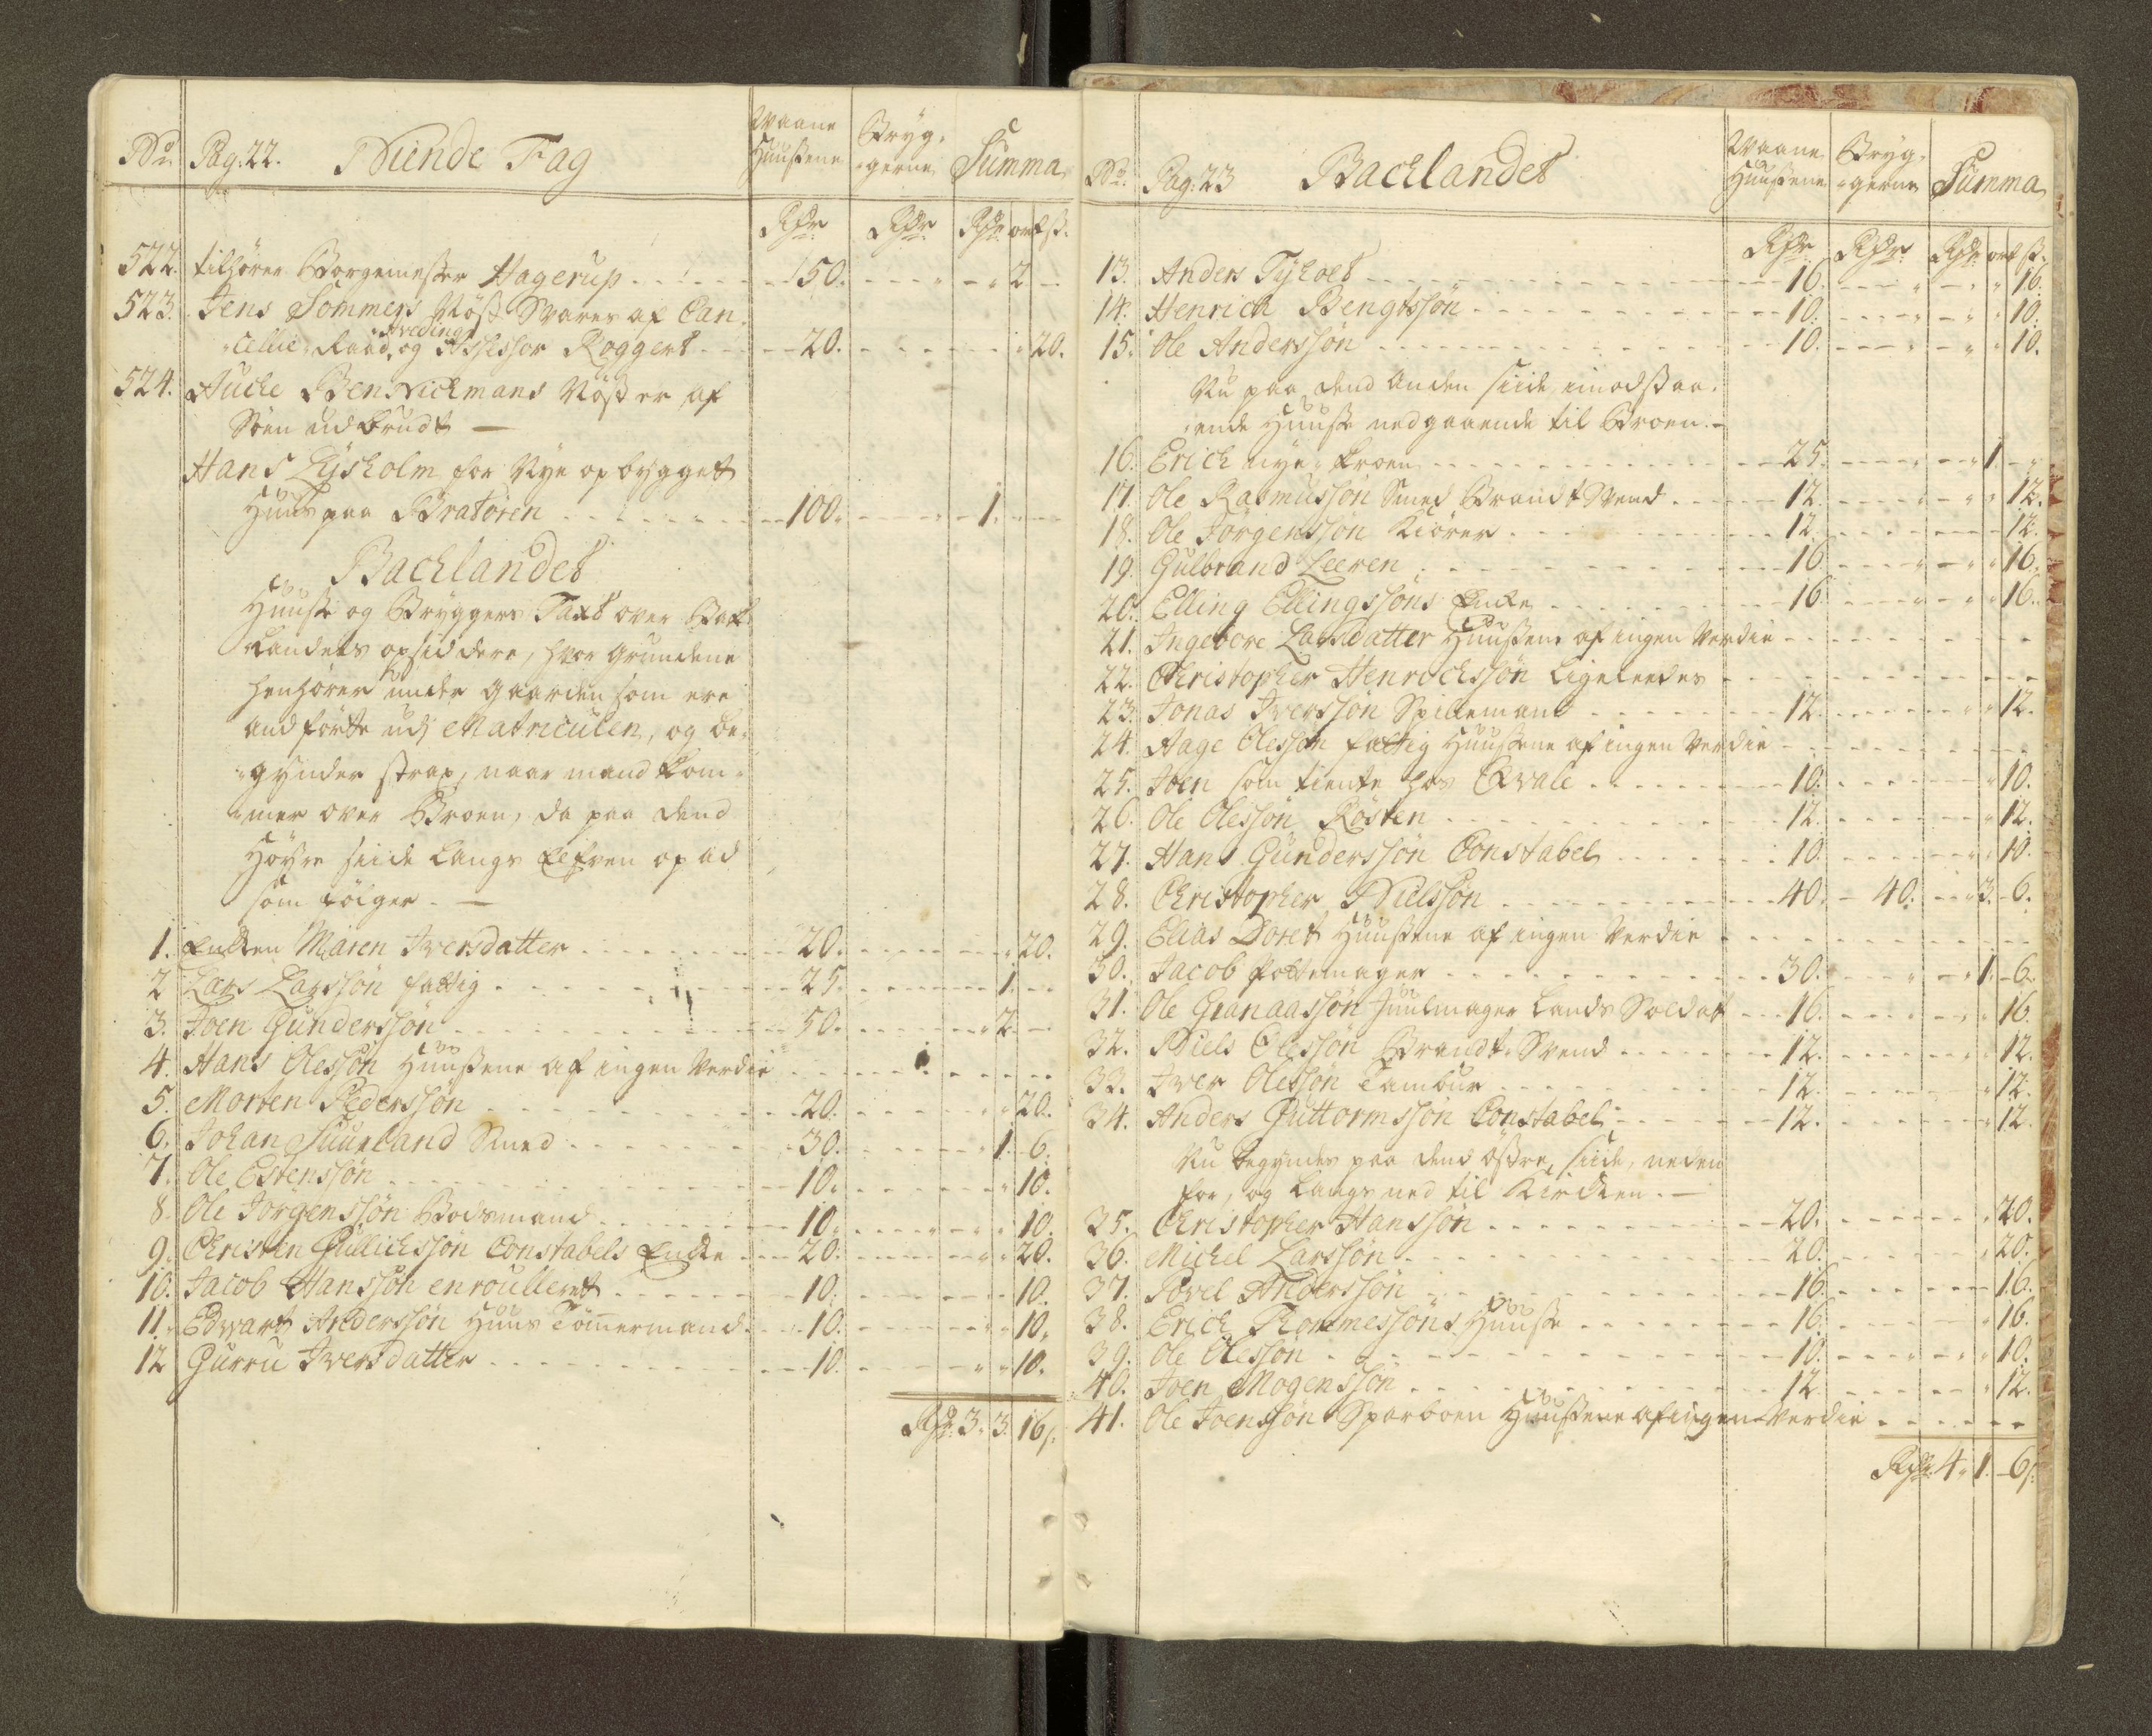 No. Pag: 22. Niende Fag Waane Huußene Bryg- gerne Summa
Rdr. Rdr. Rdr. ort ß.
522. tilhører Borgemester Hagerup 50. 2
523. Jens Sommers Nöst Svares af Can-
cellie-Raad, og Assessor Roggert 20. 20.
524. Aucke Bensvickmans Nöst er af
Söen udbrudt
Hans Lysholm for Nye opbygget
Huus paa Bratören 100. 1.
Bachlandet
Huuse og Bryggers Taxt over Bak-
Landets opsiddere, hvor Grundene
henhörer under gaarden som ere
andförte udj Matriculen, og be-
gynder strax, naar mand kom-
mer over Broen, da paa dend
Höyre siide langs Elfven op ad
som fölger.
1. Enken Maren Iversdatter 20. 20.
2 Lars Larssön fattig 25. 1.
3. Joen Gunderssön 50. 2.
4. Hans Olessön Huußene af ingen Verdie
5. Morten Pederssön 20. 20.
6. Johan Suurland Smed 30. 1. 6.
7. Ole Estenssön 10. 10.
8. Ole Jörgenssön Bodsmand 10. 10.
9. Christen Gullichssön Constabels Enke 20. 20.
10. Jacob Hanssön enroulleret 10. 10.
11. Edvart Anderssön Huus Tömmermand 10. 10.
12 Gurru Iversdatter 10. 10.
Rdr. 3. 3. 16 ß.
No. Pag: 23 Bachlandet Waane Huußene Bryg- gerne Summa
Rdr. Rdr. Rdr. ort ß.
13. Anders Tyholt 16. 16.
14. Henrich Bengtssön 10. 10.
15. Ole Anderssön 10. 10.
Nu paa dend anden siide imodstaa-
ende Huuse nedgaaende til Broen.
16. Erich nye-Kroen 25. 1.
17. Ole Rasmussön Smed Brandt Svend 12. 12.
18. Ole Jörgenssön Kiörer 12. 12.
19. Gulbrand Leeren 16 16.
20. Elling Ellingssöns Enke 16. 16.
21. Ingebore Larsdatter Huußene af ingen Verdie
22. Christopher Henrichssön ligeleedes
23. Jonas Iverssön Spillemand 12. 12.
24. Aage Olessön fattig Huußene af ingen Verdie
25. Joen som tiente hos Qvale 10. 10.
26. Ole Olessön Rösten 12. 12.
27. Hans Gunderssön Constabel 10. 10.
28. Christopher Nielssön 40. 40. 3. 6.
29. Elias Doret Huußene af ingen Verdie
30. Jacob Pottemager 30. 1. 6.
31. Ole Granaassön Juulmager Lands Soldat 16. 16.
32. Niels Olessön Brandt-Svend 12. 12.
33. Iver Olessön Tambur 12. 12.
34. Anders Guttormssön Constabel 12. 12.
Nu begyndes paa dend östre siide, neden
for, og langs ned til Kirken.
35. Christopher Hanssön 20. 20.
36. Michel Larssön 20. 20.
37. Povel Anderssön 16. 16.
38. Erich Thommessöns Huuse 16. 16.
39. Ole Olessön 10. 10.
40. Joen Mogenssön 12. 12.
41. Ole Joenssön Sparboen Huußene af ingen Verdie
Rdr. 4. 1. 6 ß.